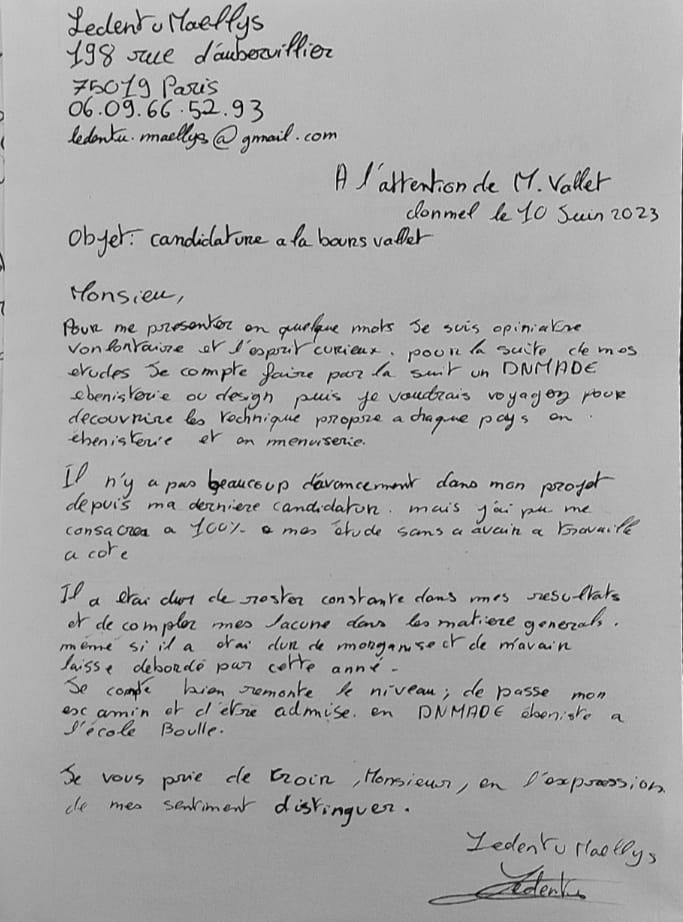 Ledentu Maellys
198 rue d'aubervillier
75019 Paris
06.09.66.52.93
ledentu.maellys@gmail.com
A l'attention de M. Vallet
clonmel le 10 Juin 2023
Objet: candidature a la bours vallet
Monsieu,
Pour me presenter en quelque mots Je suis opiniatre
vonlontaire et l'esprit curieux. pour la suite de mes
etudes Je compte faire par la suit un DNMADE
ebenisterie ou design puis je voudrais voyager pour
decouvrire les technique propre a chaque pays en
ebenisterie et en menuiserie.
Il n'y a pas beaucoup d'avancement dans mon projet
depuis ma derniere candidatur. mais j'ai pu me
consacrer a 100% a mes étude sans a avain a travaillé
a cote
Il a etai dur de rester constante dans mes resultats
et de compler mes lacune dans les matiere generals.
même si il a etai dur de morganise et de m'avain
laisse debordé par cette anné-
Je compte bien remonte le niveau; de passe mon
examin et d'etre admise. en DNMADE ébeniste a
l'école Boulle.
Je vous prie de croin, Monsieur, en l'expression
de mes sentiment distinguer.
Ledentu Maellys
Ledentu